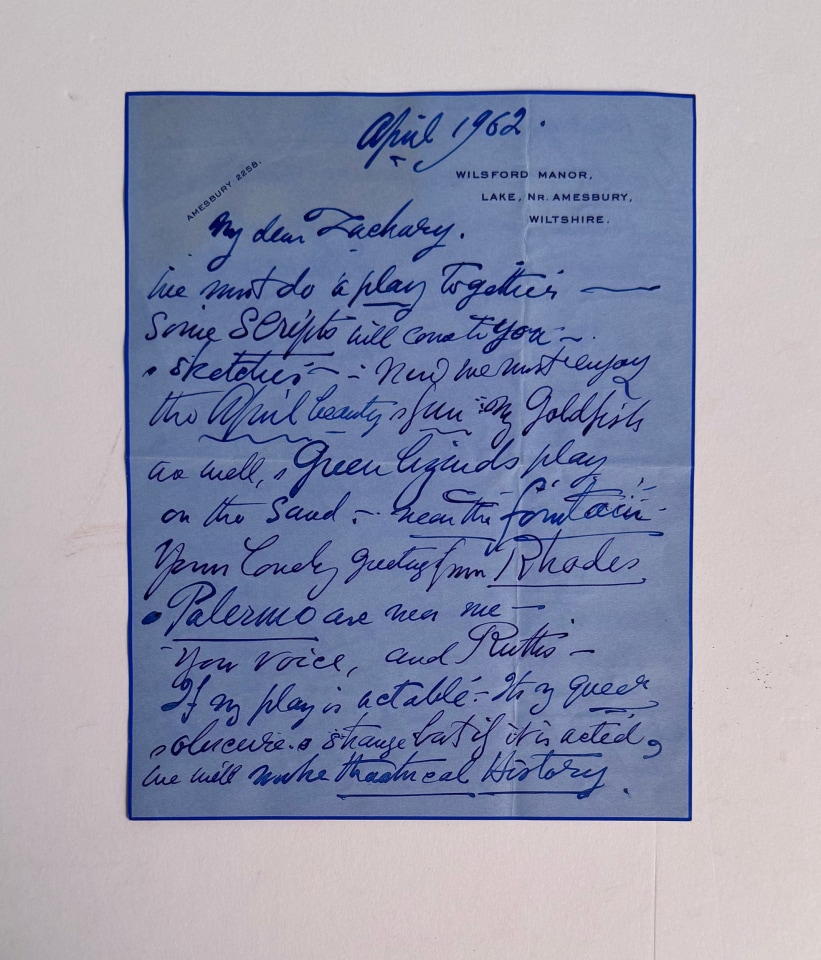 April 1962.
AMESBURY 2258.
WILSFORD MANOR,
LAKE, NR. AMESBURY,
WILTSHIRE.
My dear Zachary.
We must do a play together —
Some Scripts will come to you —.
& sketches — : Now we must enjoy
the April beauty & fun : my Goldfish
as well, & Green lizards play
on the sand — near the fountain.
Your lovely greetings from Rhodes
& Palermo are near me —
Your voice, and Ruth's —
If my play is actable — It is queer
& obscure & strange but if it is acted,
we will make theatrical History.